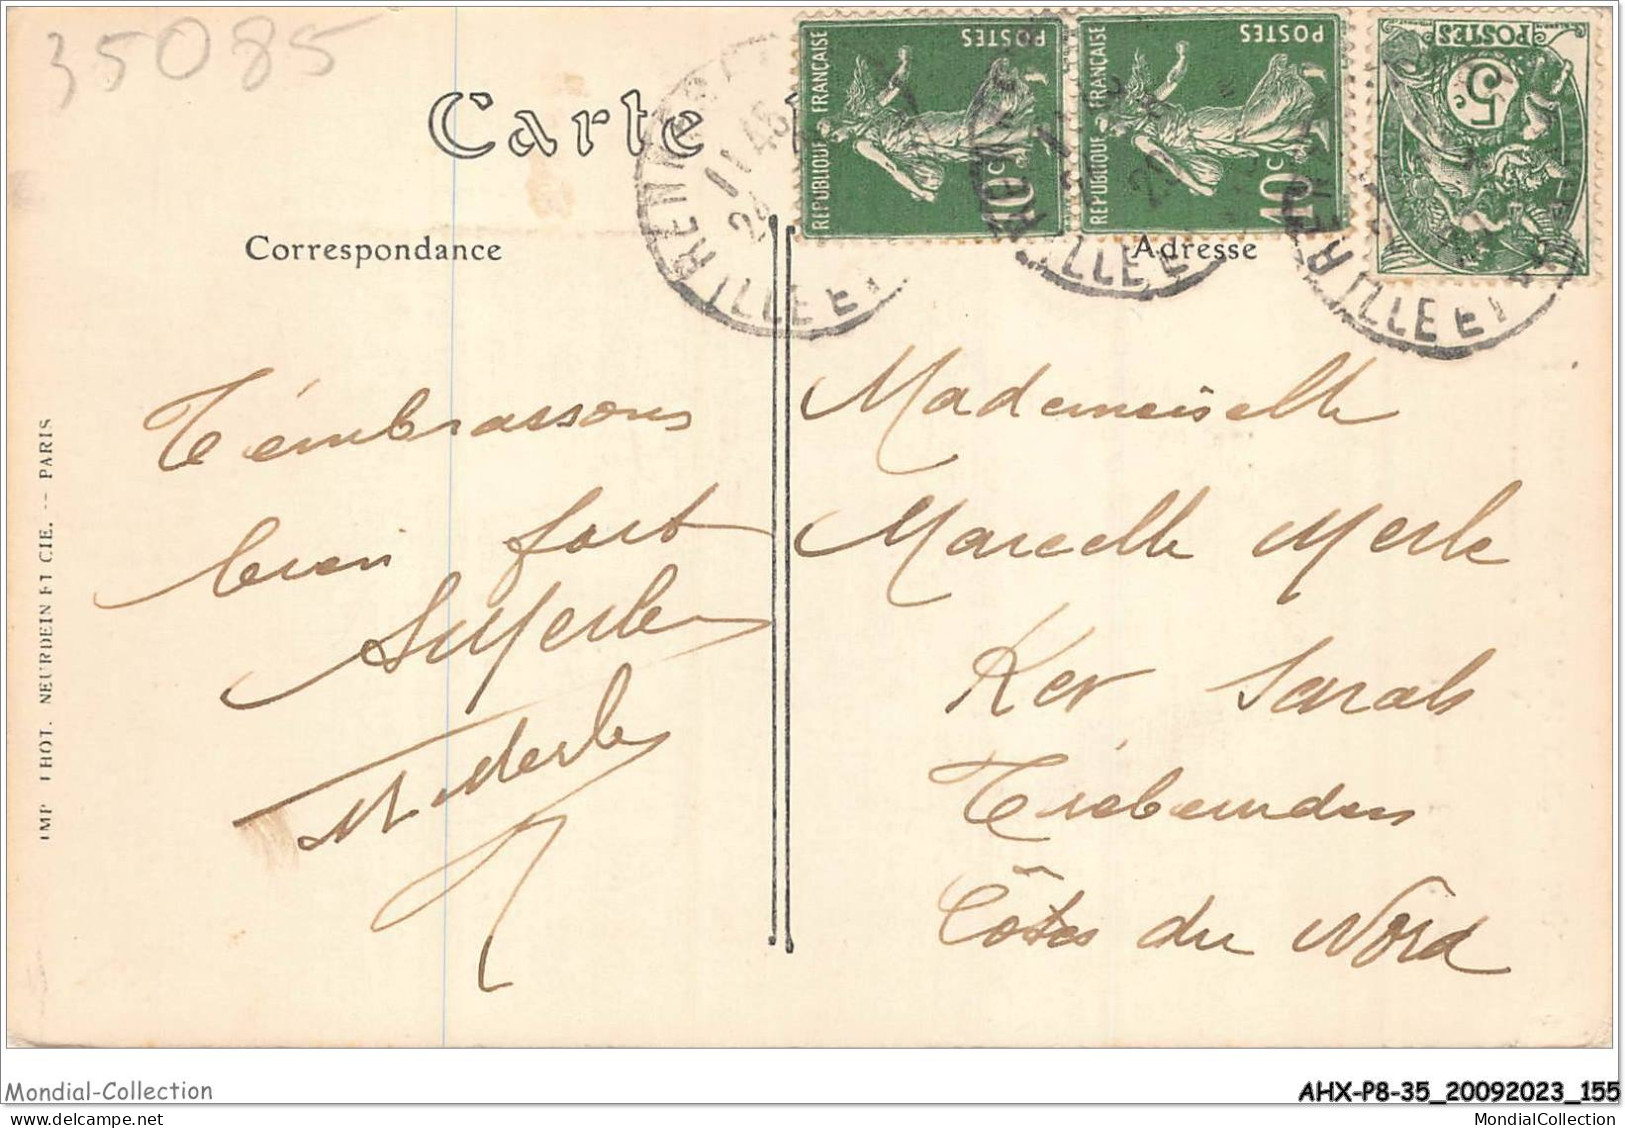 35085
Carte
POSTES
REPUBLIQUE FRANÇAISE
10c
POSTES
REPUBLIQUE FRANÇAISE
10c
POSTES
5c
11 45
ILLE ET
ILLE E
ILLE ET
Correspondance
Adresse
T'embrassons
bien fort
Merle
M Merle
Mademoiselle
Marcelle Merle
Ker Sarah
Trébeurden
Côtes du Nord
IMP. PHOT. NEURDEIN ET CIE. -- PARIS
Mondial-Collection
AHX-P8-35_20092023_155
www.delcampe.net
MondialCollection